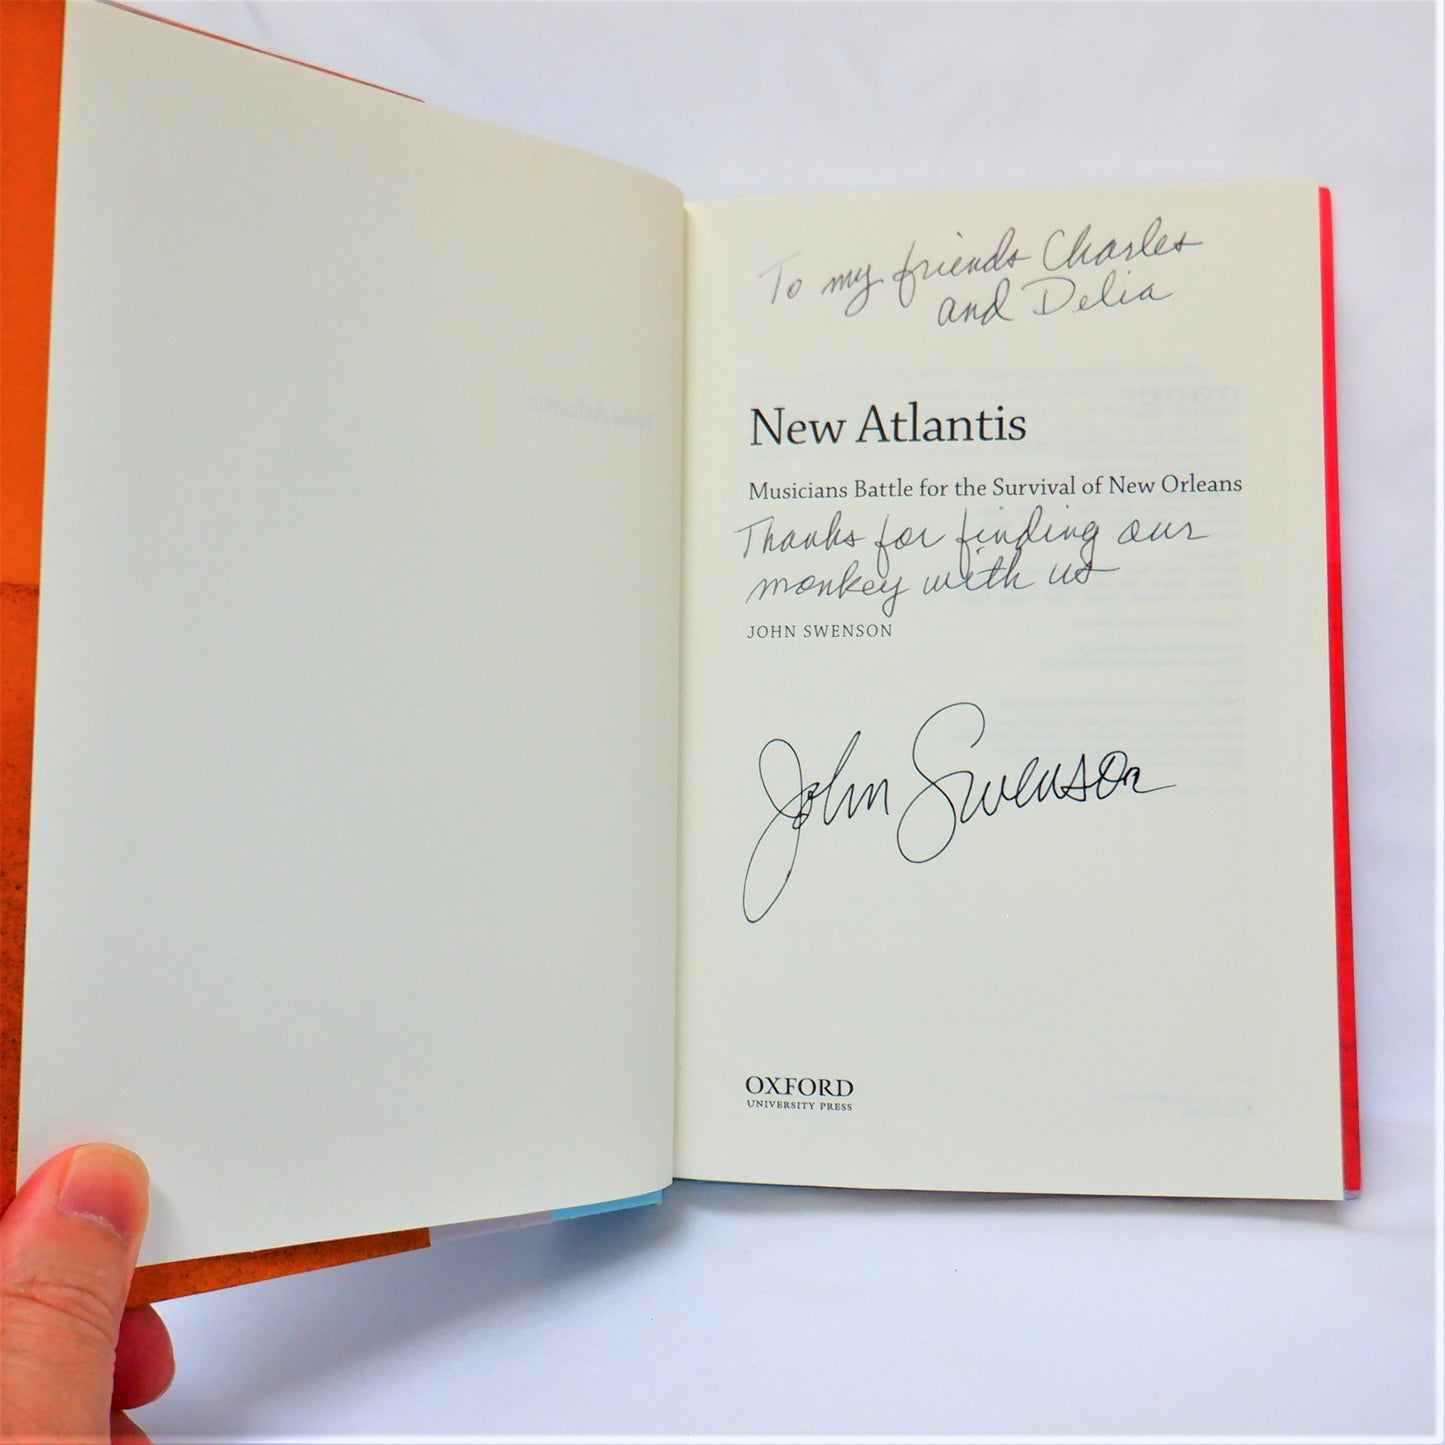 To my friends Charles
and Delia
New Atlantis
Musicians Battle for the Survival of New Orleans
Thanks for finding our
monkey with us
JOHN SWENSON
John Swenson
OXFORD
UNIVERSITY PRESS